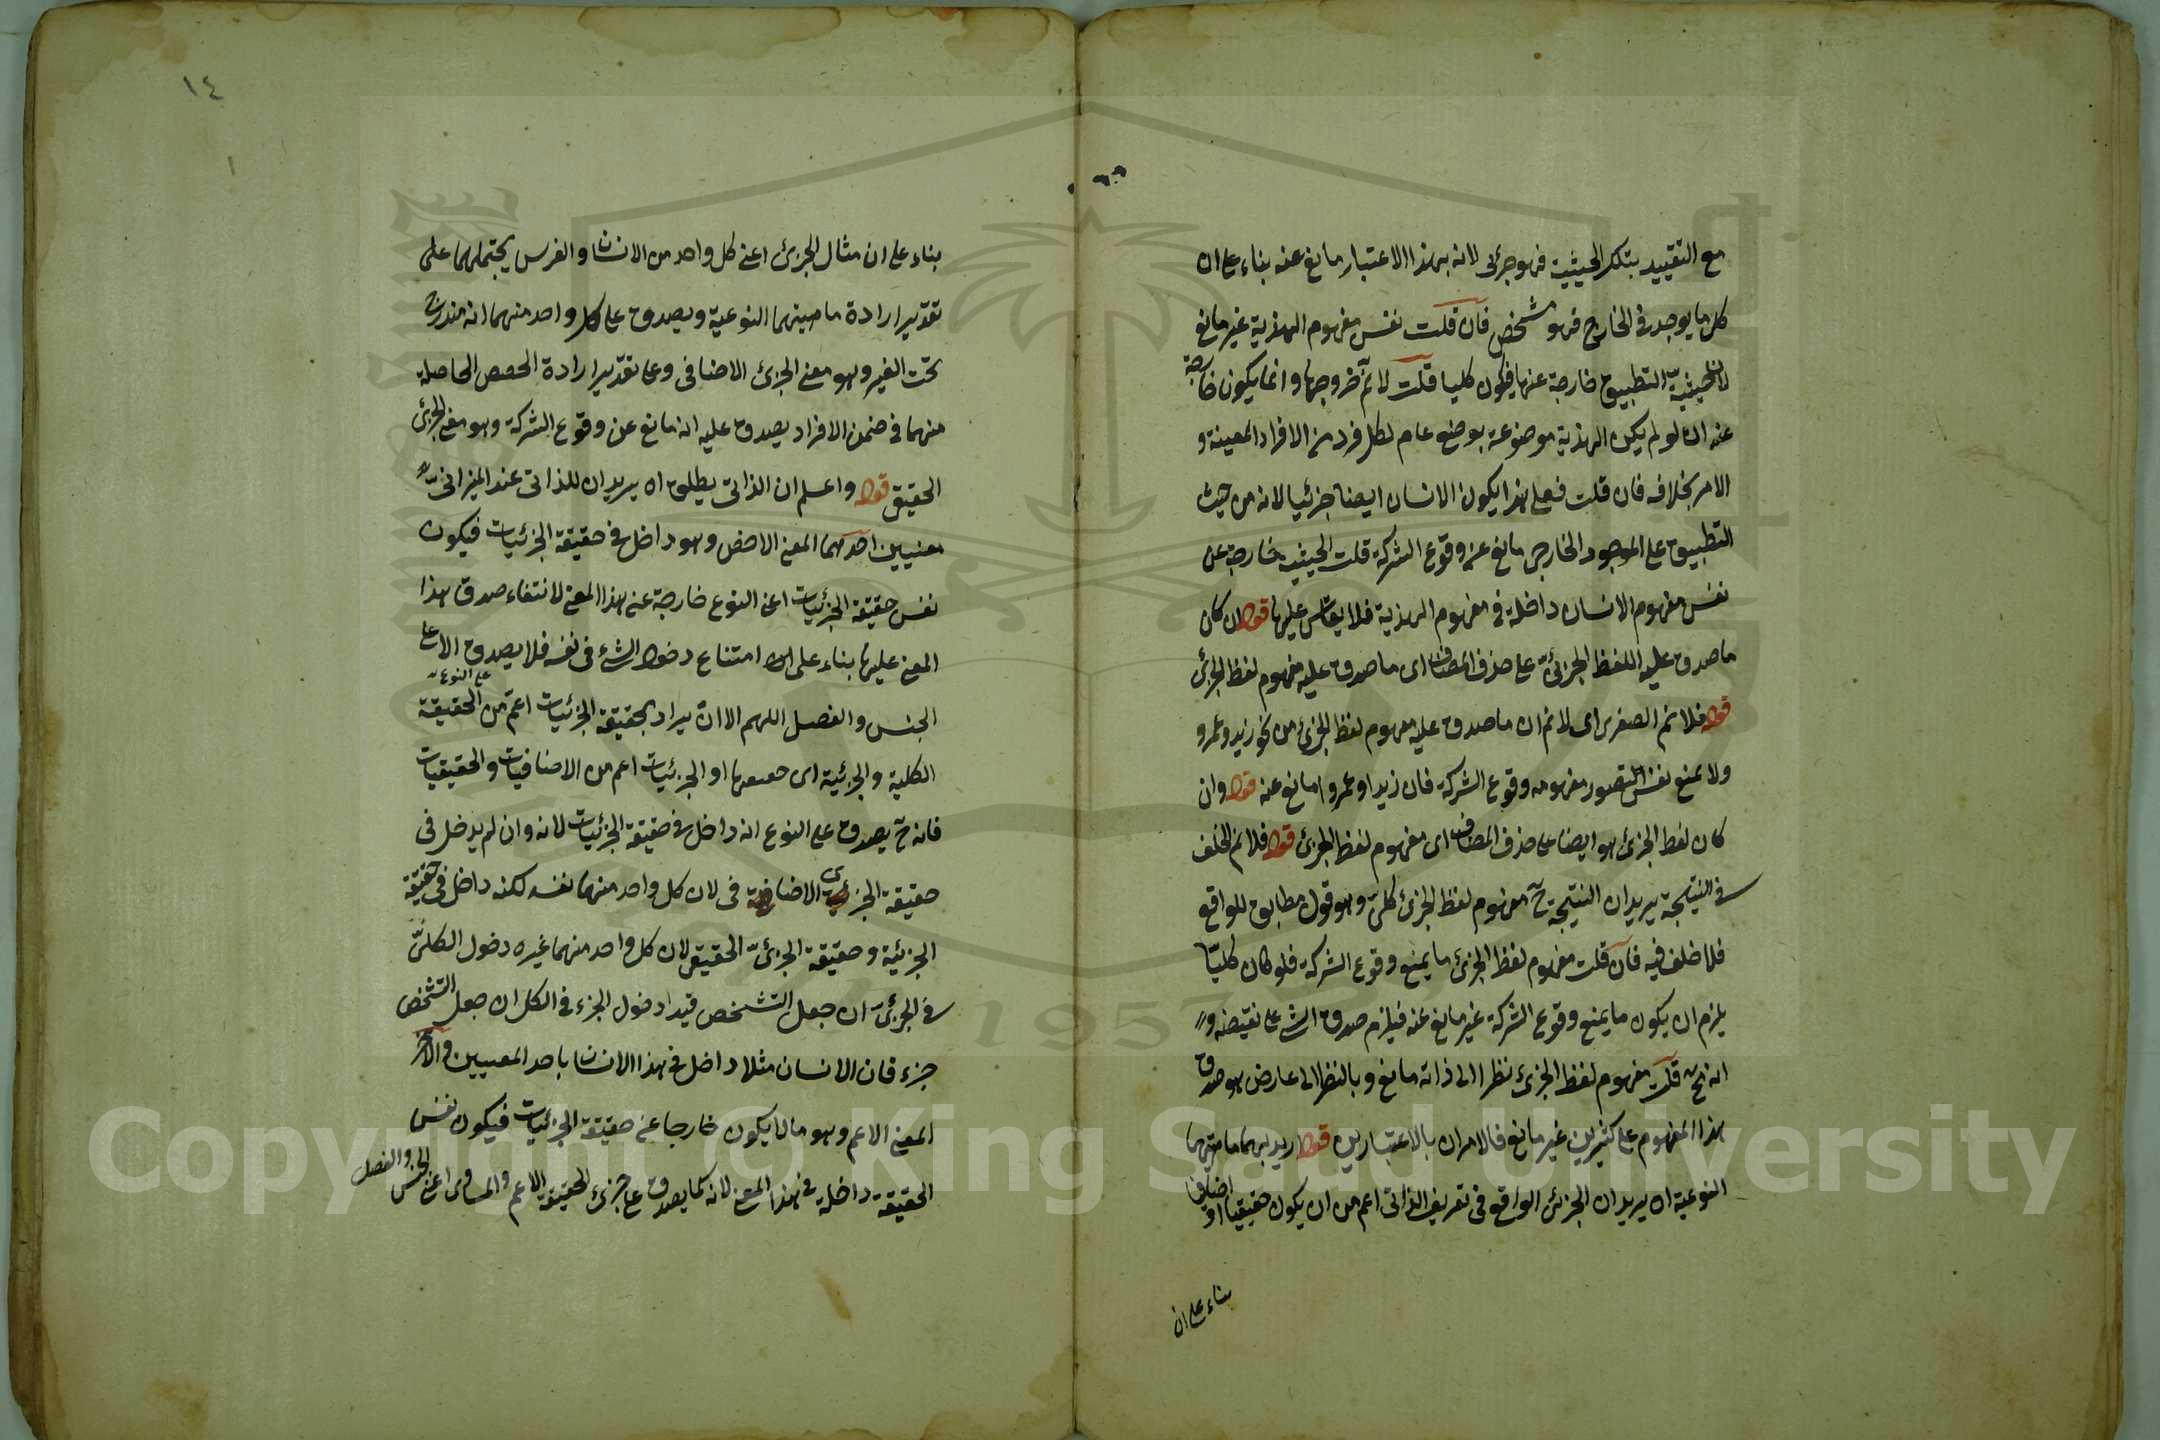 مع التقييد بتلك الحيثية فهو جزئى لانه بهذا الاعتبار مانع عنه بناء على ان
كل ما يوجد فى الخارج فهو مشخص فان قلت نفس مفهوم الهذية غير مانع
لان حيثية التطبيق خارجة عنها فيكون كليا قلت لا نم خروجها وانما يكون خارجة
عنه ان لو لم يكن الهذية موضوعة بوضع عام لكل فرد من الافراد المعينة و
الامر بخلافه فان قلت فعلى هذا يكون الانسان ايضا جزئيا لانه من حيث
التطبيق على الموجود الخارجى مانع عن وقوع الشركة قلت الحيثية خارجة عن
نفس مفهوم الانسان داخلة فى مفهوم الهذية فلا يقاس عليها قوله ان كان
ما صدق عليه اللفظ الجزئى على حذف المضاف اى ما صدق عليه مفهوم لفظ الجزئى
قوله فلا نم الصغرى اى لا نم ان ما صدق عليه مفهوم لفظ الجزئى من نحو زيد وعمرو
ولا يمنع نفس تصور مفهومه وقوع الشركة فان زيدا وعمروا مانع عنه قوله وان
كان لفظ الجزئى هو ايضا على حذف المضاف اى مفهوم لفظ الجزئى قوله فلا نم الخلف
فى النتيجة يريد ان النتيجة ح مفهوم لفظ الجزئى كلى وهو قول مطابق للواقع
فلا خلف فيه فان قلت مفهوم لفظ الجزئى ما يمنع وقوع الشركة فلو كان كليا
يلزم ان يكون ما يمنع وقوع الشركة غير مانع عنه فيلزم صدق الشئ على نقيضه و
انه مح قلت مفهوم لفظ الجزئى نظرا الى ذاته مانع وبالنظر الى عارض هو صدق
هذا المفهوم على كثيرين غير مانع فالامران بالاعتبارين قوله اريد بهما ماهيتهما
النوعية اه يريد ان الجزئى الواقع فى تعريف الذاتى اعم من ان يكون حقيقيا او اضافيا
بناء على ان
١٤
بناء على ان مثال الجزئى اعنى كل واحد من الانسان والفرس يحتملهما على
تقدير ارادة ماهيتهما النوعية ويصدق على كل واحد منهما انه مندرج
تحت الغير وهو معنى الجزئى الاضافى وعلى تقدير ارادة الحصص الحاصلة
منهما فى ضمن الافراد يصدق عليه انه مانع عن وقوع الشركة وهو معنى الجزئى
الحقيقى قوله واعلم ان الذاتى يطلق اه يريد ان للذاتى عند الميزانى
معنيين احدهما المعنى الاخص وهو داخل فى حقيقة الجزئيات فيكون
نفس حقيقة الجزئيات اعنى النوع خارجة عن هذا المعنى لانتفاء صدق هذا
المعنى عليها بناء على امتناع دخول الشئ فى نفسه فلا يصدق الا على
الجنس والفصل اللهم الا ان يراد بحقيقة الجزئيات اعم من الحقيقة
على النوع
الكلية والجزئية اى او الجزئيات اعم من الاضافيات والحقيقيات
فانه ح يصدق على النوع انه داخل فى حقيقة الجزئيات لانه وان لم يدخل فى
حقيقة الجزئى الاضافى لان كل واحد منهما نفسه لكنه داخل فى حقيقة
الجزئية وحقيقة الجزئى الحقيقى لان كل واحد منهما غيره دخول الكلى
فى الجزئى ان جعل التشخص قيدا ودخول الجزء فى الكل ان جعل التشخص
جزء فان الانسان مثلا داخل فى هذا الانسان باحد المعنيين والآخر
المعنى الاعم وهو ما لا يكون خارجا عن حقيقة الجزئيات فيكون نفس
الحقيقة داخلة فى هذا المعنى لانه كما يصدق على جزئى الحقيقة الاعم والمساوى اعنى الجنس والفصل
Copyright © King Saud University
1957